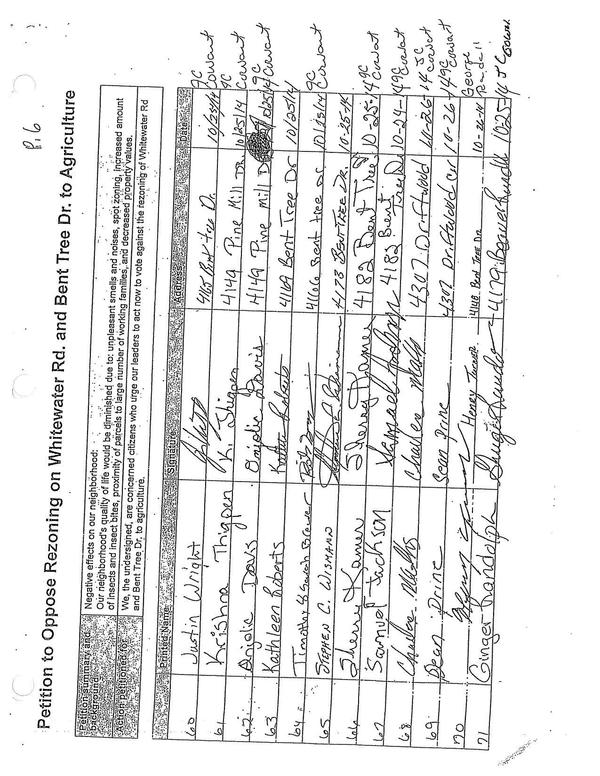 P.16
Petition to Oppose Rezoning on Whitewater Rd. and Bent Tree Dr. to Agriculture
Petition summary and background: Negative effects on our neighborhood:
Our neighborhood's quality of life would be diminished due to: unpleasant smells and noises, spot zoning, increased amount
of insects and insect bites, proximity of parcels to large number of working families, and decreased property values.
Action petitioned for: We, the undersigned, are concerned citizens who urge our leaders to act now to vote against the rezoning of Whitewater Rd
and Bent Tree Dr. to agriculture.
Printed Name Signature Address Date
60 Justin Wright 4165 Bent tree Dr. 10/25/14 9C Cowart
61 Krishna Thigpen K. Thigpen 4149 Pine Mill DR. 10/25/14 9C Cowart
62 Anjolie Davis Anjolie Davis 4149 Pine mill D 10/25/14 9C Cowart
63 Kathleen Roberts Kathleen Roberts 4169 Bent Tree Dr 10/25/14
64 Timothy & Sarah Brewer Bent tree Dr 10/25/14 9C Cowart
65 STEPHEN C. WISMANN 4173 BENT TREE DR. 10-25-14
66 Sherry Kamer Sherry Kamer 4182 Bent Tree 10-25-14 9C Cowart
67 Samuel Jackson Samuel Jackson 4182 Bent Tree Dr 10-24-14 9C Cowart
68 Charles Charles 4307 Driftwood 10-26-14 Cowart
69 Dean Prine Dean Prine 4307 Driftwood Dr 10-26-14 9C Cowart
70 Henry 4140 Bent Tree Dr. 10-26-14 George
71 Ginger Randolph 4179 10-25-14 Cowart